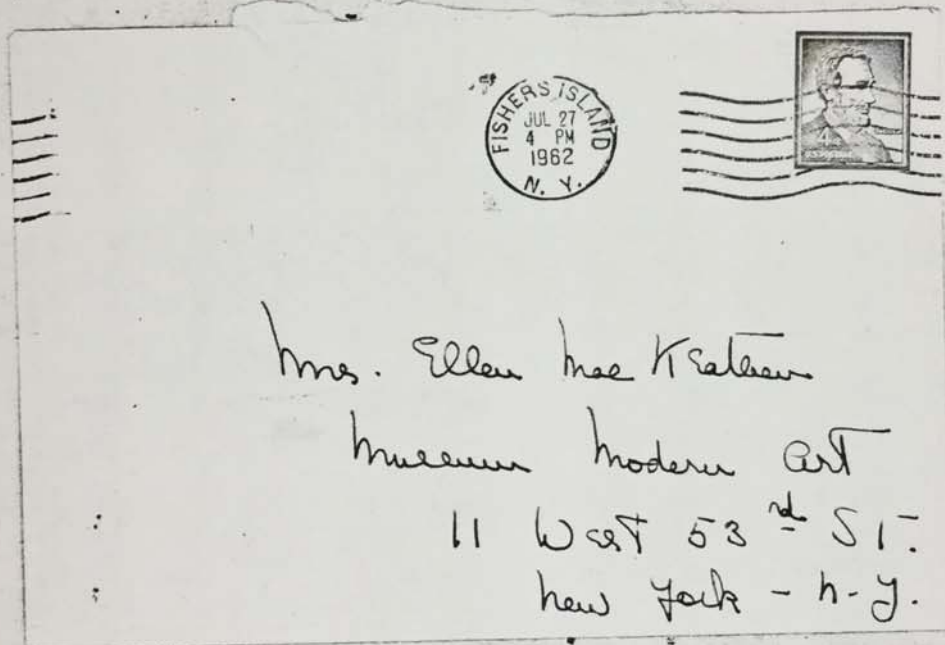 FISHERS ISLAND
JUL 27
4 PM
1962
N. Y.
4¢
Mrs. Ellen Mac Keathen
Museum Modern Art
11 West 53rd St.
New York - N-Y.